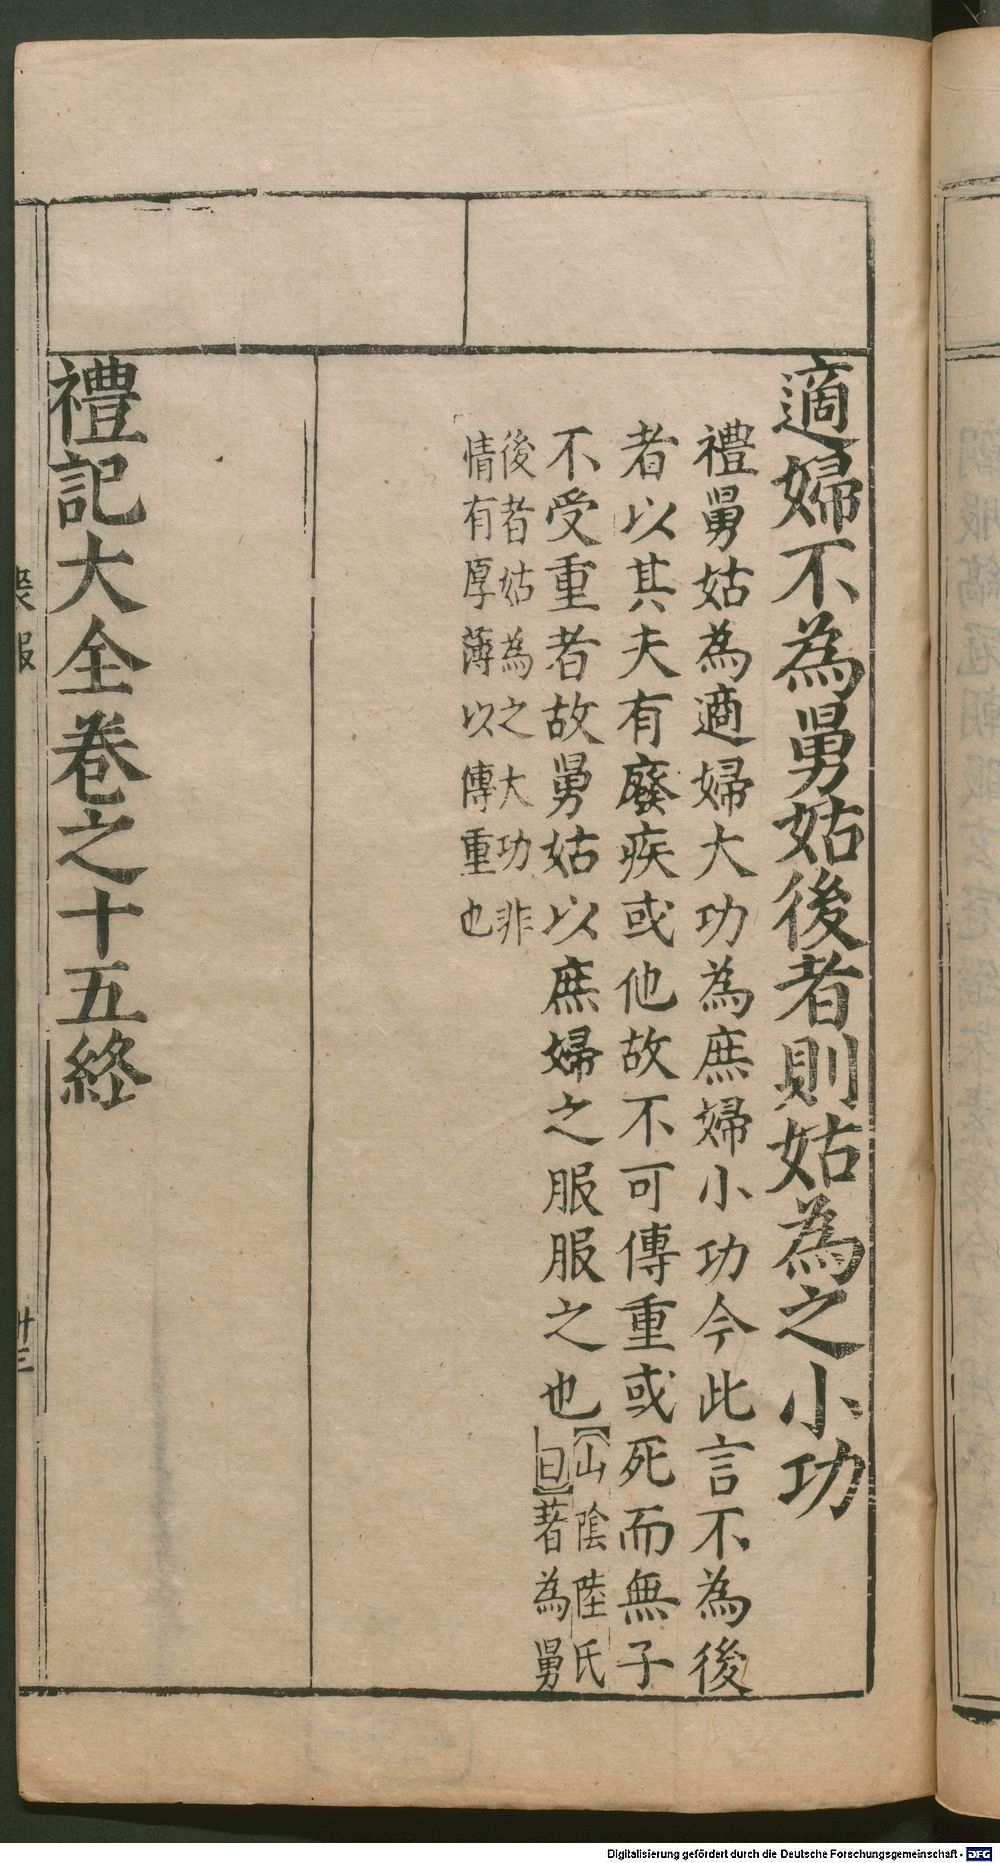 適婦不為舅姑後者則姑為之小功
禮舅姑為適婦大功為庶婦小功今此言不為後
者以其夫有廢疾或他故不可傳重或死而無子
不受重者故舅姑以庶婦之服服之也
山陰陸氏
曰著為舅
後者姑為之大功非
情有厚薄以傳重也
禮記大全卷之十五終
喪服
卅三
Digitalisierung gefördert durch die Deutsche Forschungsgemeinschaft - DFG